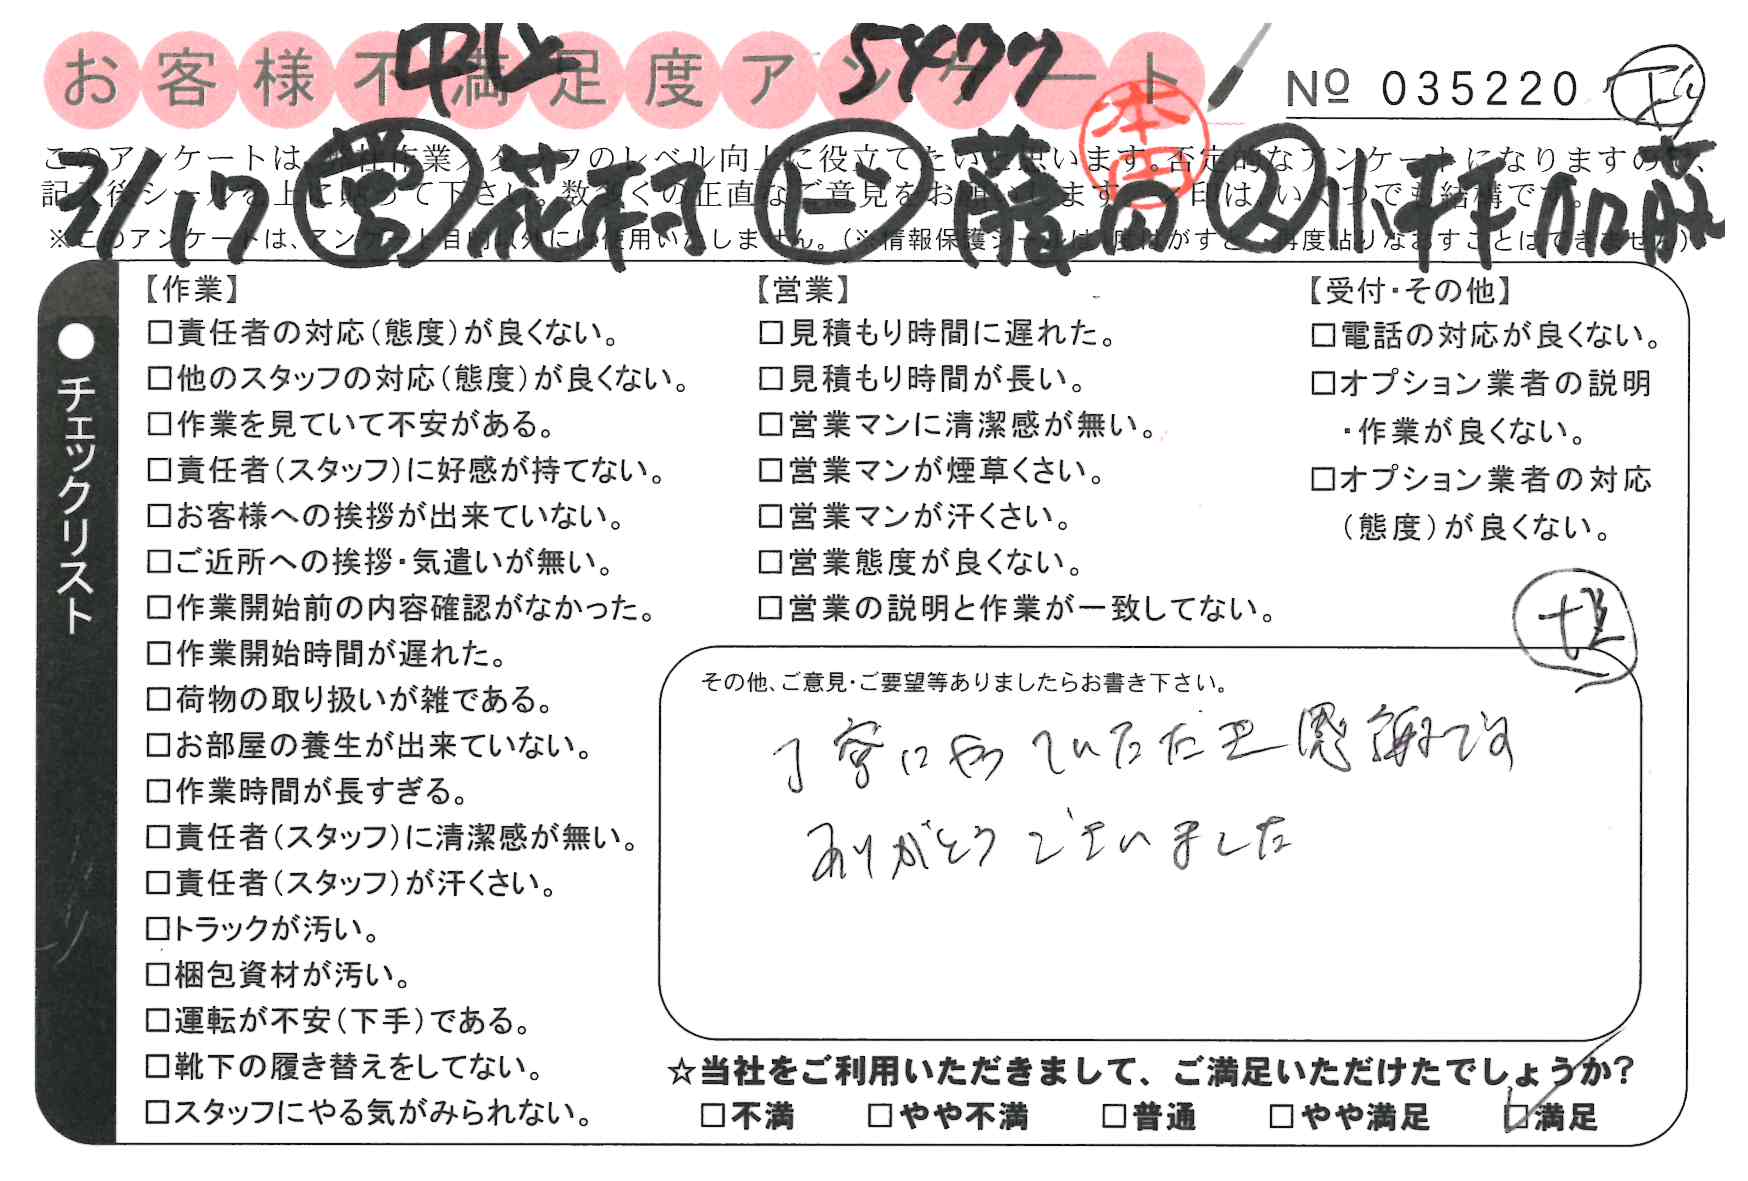 お客様不満足度アンケート
5477
№ 035220
本田
このアンケートは、弊社作業スタッフのレベル向上に役立てたいと思います。否定的なアンケートになりますので、
記入後シールを上に貼って下さい。数多くの正直なご意見をお願いします。✓印は、いくつでも結構です。
※このアンケートは、アンケート目的以外には使用いたしません。(※情報保護シールは1度はがすと、再度貼りなおすことはできません)
3/17 営 花村 リーダー
●チェックリスト
【作業】
□責任者の対応(態度)が良くない。
□他のスタッフの対応(態度)が良くない。
□作業を見ていて不安がある。
□責任者(スタッフ)に好感が持てない。
□お客様への挨拶が出来ていない。
□ご近所への挨拶・気遣いが無い。
□作業開始前の内容確認がなかった。
□作業開始時間が遅れた。
□荷物の取り扱いが雑である。
□お部屋の養生が出来ていない。
□作業時間が長すぎる。
□責任者(スタッフ)に清潔感が無い。
□責任者(スタッフ)が汗くさい。
□トラックが汚い。
□梱包資材が汚い。
□運転が不安(下手)である。
□靴下の履き替えをしてない。
□スタッフにやる気がみられない。
【営業】
□見積もり時間に遅れた。
□見積もり時間が長い。
□営業マンに清潔感が無い。
□営業マンが煙草くさい。
□営業マンが汗くさい。
□営業態度が良くない。
□営業の説明と作業が一致してない。
【受付・その他】
□電話の対応が良くない。
□オプション業者の説明
・作業が良くない。
□オプション業者の対応
(態度)が良くない。
その他、ご意見・ご要望等ありましたらお書き下さい。
丁寧にやっていただき感謝です
ありがとうございました
☆当社をご利用いただきまして、ご満足いただけたでしょうか?
□不満 □やや不満 □普通 □やや満足 ☑満足